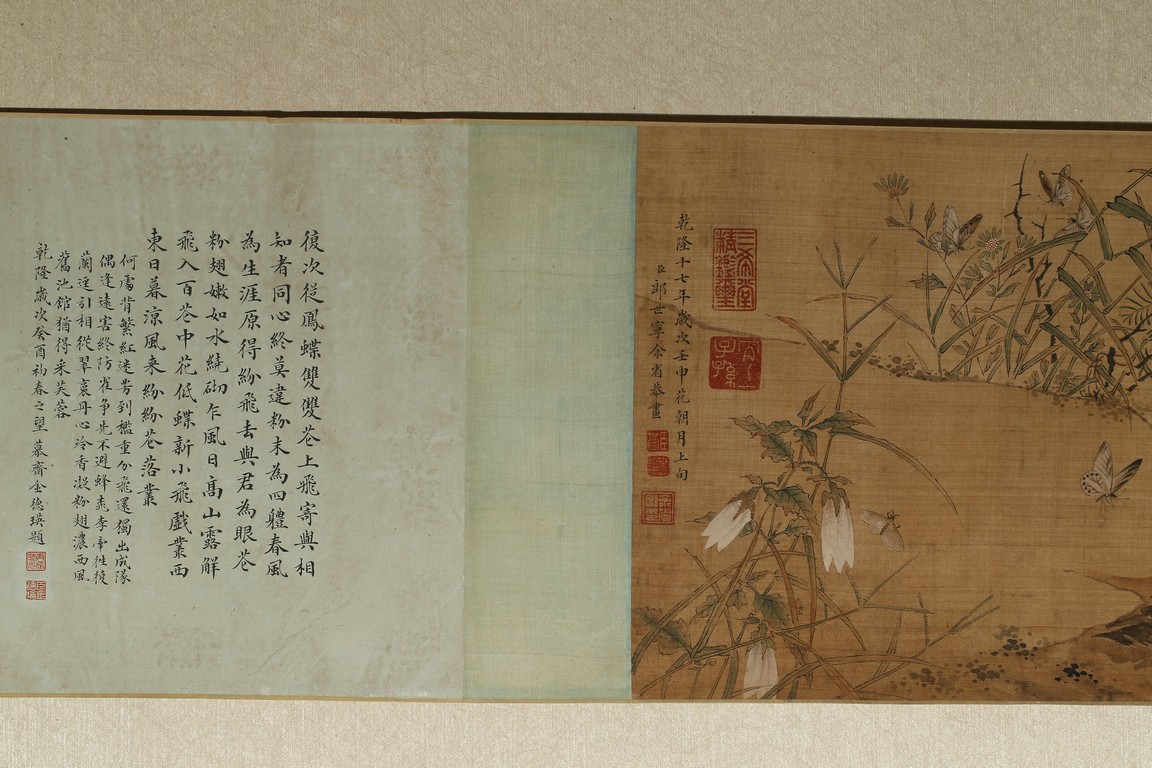 三希堂精鑑璽
宜子孫
乾隆十七年歲次壬申花朝月上旬
臣郎世寧余省恭畫
復次從鳳蝶雙雙花上飛寄與相
知者同心終莫違粉末為四體春風
為生涯原得紛飛去與君為眼花
粉翅嫩如水繞砌乍風日高山露解
飛入百花中花低蝶新小飛戲叢西
東日暮涼風来紛紛花落叢
何處背繁紅迷芳到檻重分飛還獨出成隊
偶逢遠害終防雀爭先不避蜂桃李幸往復
蘭逕引相從翠裛丹心冷香凝粉翅濃西風
舊池館猶得采芙蓉
乾隆歲次癸酉初春之望 慕齋金德瑛題